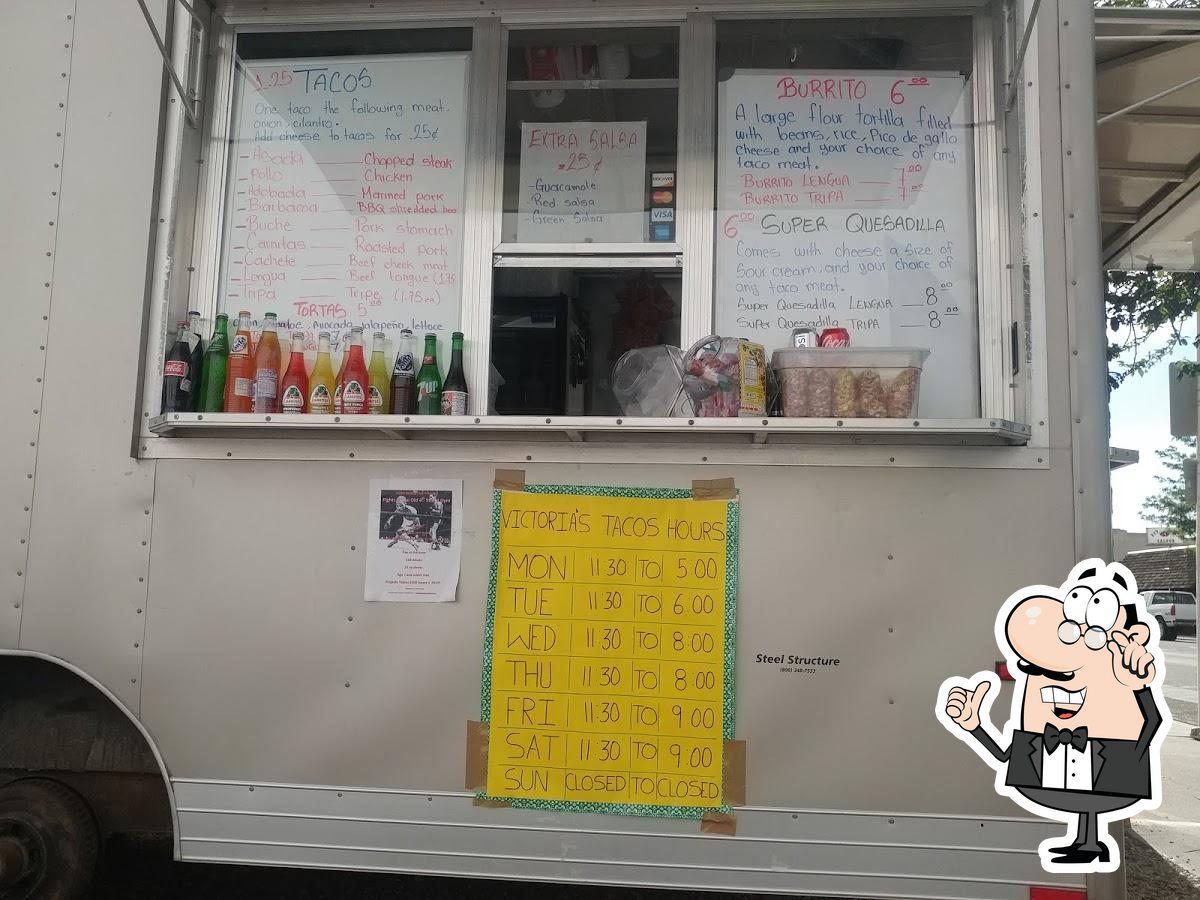 1.25 TACOS
One taco the following meat.
onion, cilantro.
Add cheese to tacos for .25¢
- Asada Chopped steak
- Pollo Chicken
- Adobada Marined pork
- Barbacoa BBQ shredded
- Buche Pork stomach
- Carnitas Roasted pork
- Cachete Beef cheek meat
- Lengua Beef tongue (1.75
- Tripa Tripe (1.75 ea)
TORTAS 5.00
avocado, jalapeño, lettuce
EXTRA SALSA
.25¢
- Guacamole
- Red salsa
- Green Salsa
DISCOVER
VISA
BURRITO 6.00
A large flour tortilla filled
with beans, rice, Pico de gallo
cheese and your choice of any
taco meat.
BURRITO LENGUA 7.00
BURRITO TRIPA 7.00
6.00 SUPER QUESADILLA
Comes with cheese a size of
Sour cream, and your choice of
any taco meat.
Super Quesadilla LENGUA 8.00
Super Quesadilla TRIPA 8.00
Coca-Cola
7UP
VICTORIA'S TACOS HOURS
MON 11:30 TO 5:00
TUE 11:30 TO 6:00
WED 11:30 TO 8:00
THU 11:30 TO 8:00
FRI 11:30 TO 9:00
SAT 11:30 TO 9:00
SUN CLOSED TO CLOSED
Steel Structure